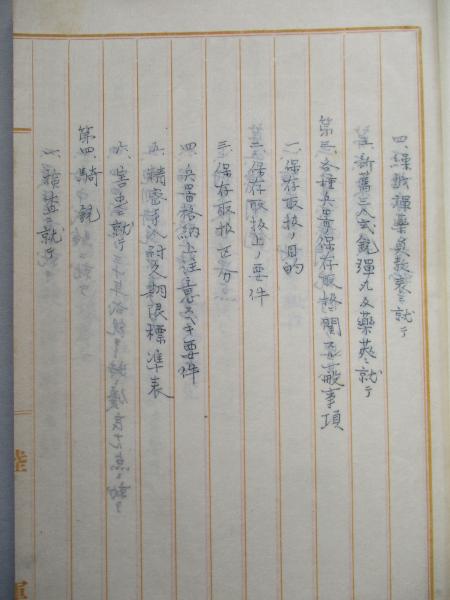 四、銃砲彈藥員数表ニ就テ
五、新舊三八式銃彈丸及藥莢ニ就テ
第三、各種兵器保存取扱関スル一般事項
一、保存取扱ノ目的
二、保存取扱上ノ要件
三、保存取扱区分
四、兵器格納上注意スベキ要件
五、精密
耐久期限標準表
六、害虫ニ就テ
第四、騎銃
一、検査ニ就テ
陸
軍